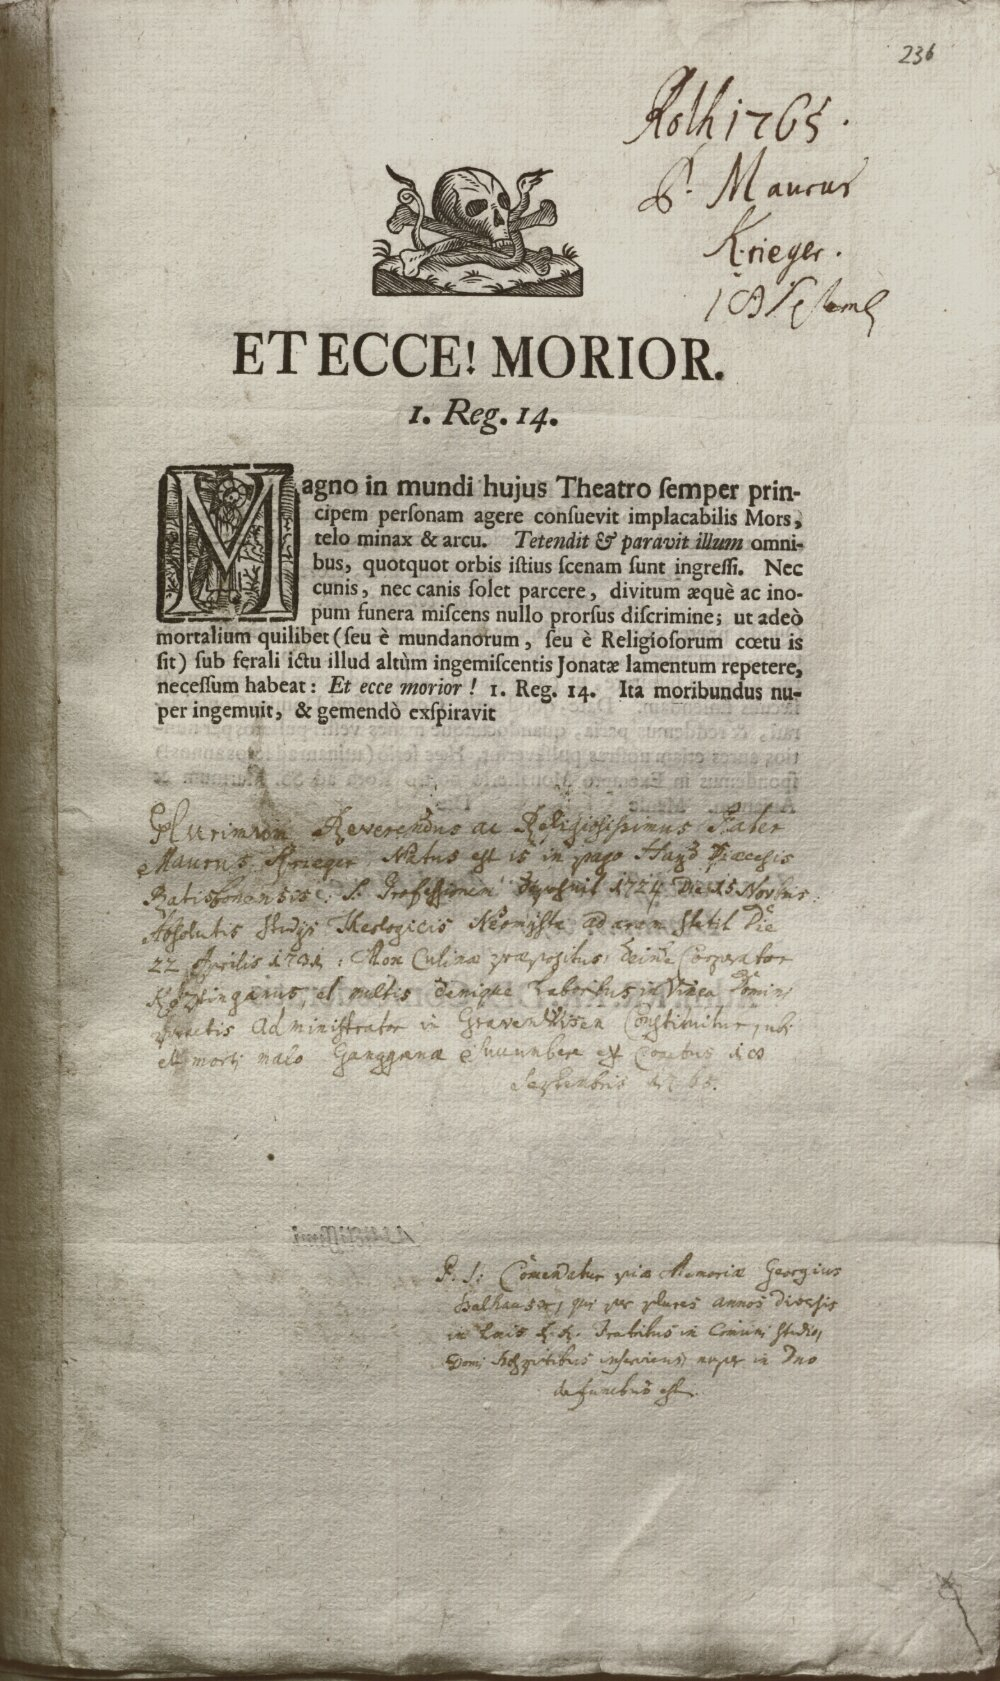 236
Roth 1765.
P. Maurus
Krieger.
18 Septemb
ET ECCE! MORIOR.
1. Reg. 14.
Magno in mundi hujus Theatro semper prin-
cipem personam agere consuevit implacabilis Mors,
telo minax & arcu. Tetendit & paravit illum omni-
bus, quotquot orbis istius scenam sunt ingressi. Nec
cunis, nec canis solet parcere, divitum æquè ac ino-
pum funera miscens nullo prorsus discrimine; ut adeò
mortalium quilibet (seu è mundanorum, seu è Religiosorum cœtu is
sit) sub ferali ictu illud altùm ingemiscentis Jonatæ lamentum repetere,
necessum habeat: Et ecce morior! 1. Reg. 14. Ita moribundus nu-
per ingemuit, & gemendò exspiravit
Plurimum Reverendus ac Religiosissimus Pater
Maurus Krieger Natus est is in pago Diæcesis
Ratisbonensis: S. Professionem deposuit 1724 Die 15 Novbris:
Absolutis studijs Theologicis Neomysta ad aram stetit Die
22 Aprilis 1731: Mox Culinæ præpositus, deinde Cooperator
Közinganus, et multis denique Laboribus in Vinea Domini
Administrator in Constituitur, ubi
et morti malo Ganggrenæ 18
Septembris 1765.
P. S: Comendatur piæ Memoriæ Georgius
qui per plures annos
in Fratribus in Comuni studio,
Domi Hospitibus inserviens nuper in Dno
defunctus est.